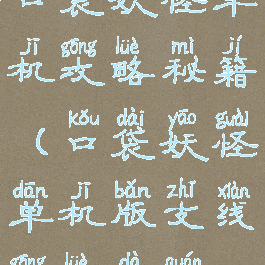 口袋妖怪单
jī gōng lüè mì jí
机攻略秘籍
kǒu dài yāo guài
（口袋妖怪
dān jī bǎn zhī xiàn
单机版支线
gōng lüè dà quán